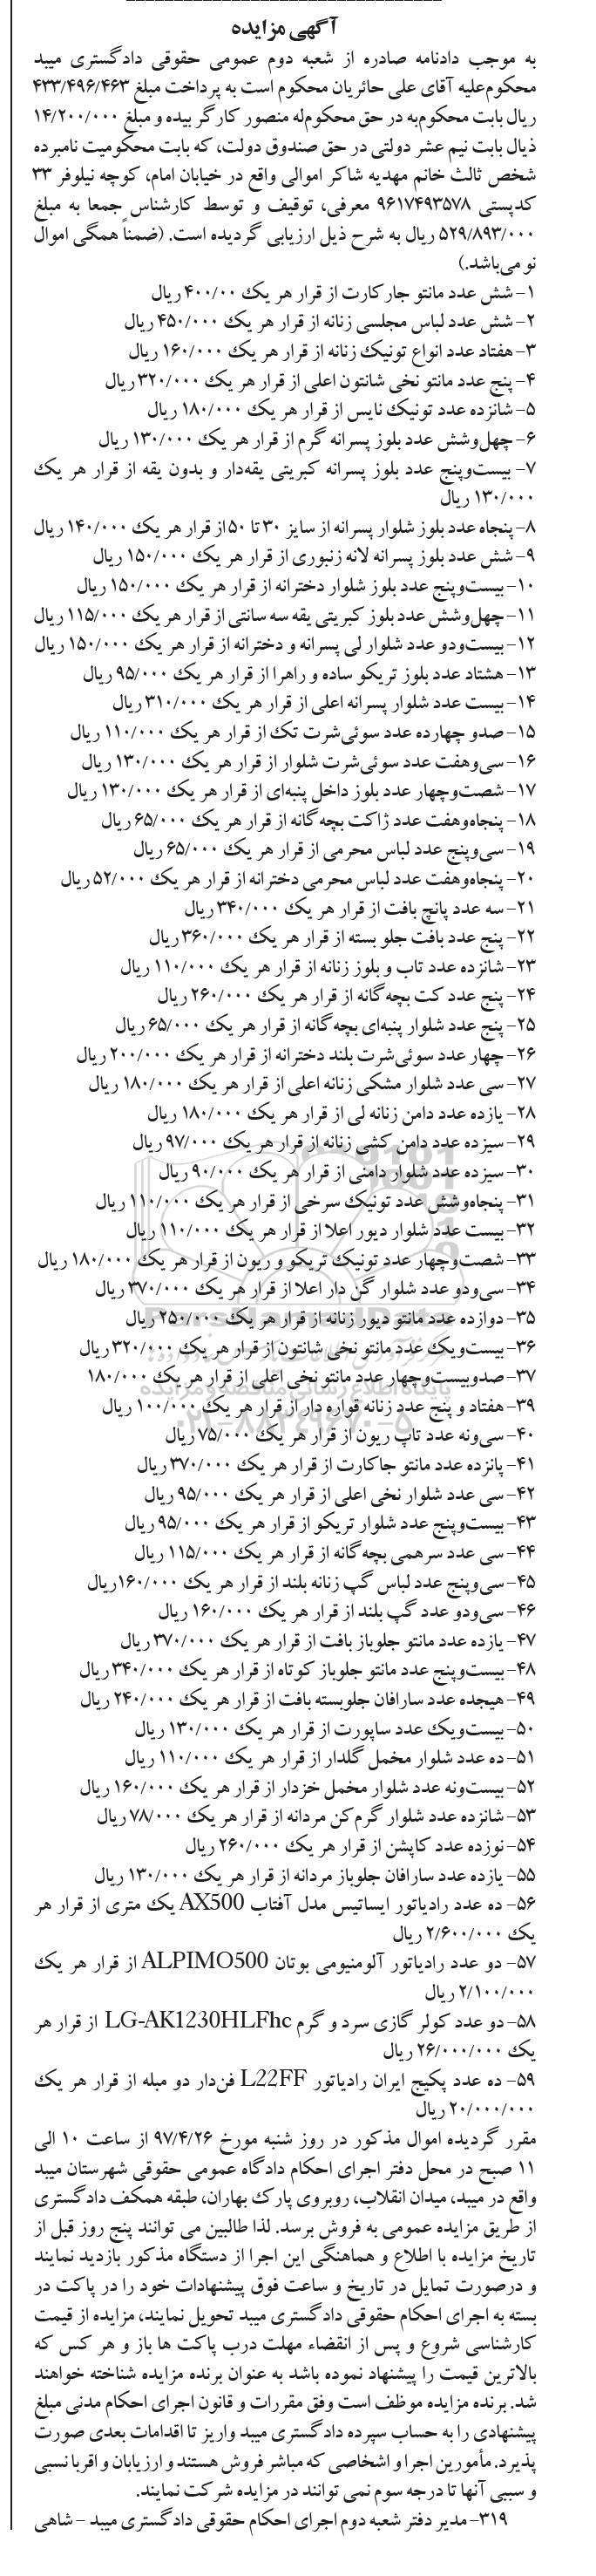 آگهی مزایده
به موجب دادنامه صادره از شعبه دوم عمومی حقوقی دادگستری میبد
محکوم‌علیه آقای علی حائریان محکوم است به پرداخت مبلغ ۴۳۳/۴۹۶/۴۶۳
ریال بابت محکوم‌به در حق محکوم‌له منصور کارگر بیده و مبلغ ۱۴/۲۰۰/۰۰۰
ذیال بابت نیم عشر دولتی در حق صندوق دولت، که بابت محکومیت نامبرده
شخص ثالث خانم مهدیه شاکر اموالی واقع در خیابان امام، کوچه نیلوفر ۳۳
کدپستی ۹۶۱۷۴۹۳۵۷۸ معرفی، توقیف و توسط کارشناس جمعا به مبلغ
۵۲۹/۸۹۳/۰۰۰ ریال به شرح ذیل ارزیابی گردیده است. (ضمناً همگی اموال
نو می‌باشد.)
۱- شش عدد مانتو جارکارت از قرار هر یک ۴۰۰/۰۰ ریال
۲- شش عدد لباس مجلسی زنانه از قرار هر یک ۴۵۰/۰۰۰ ریال
۳- هفتاد عدد انواع تونیک زنانه از قرار هر یک ۱۶۰/۰۰۰ ریال
۴- پنج عدد مانتو نخی شانتون اعلی از قرار هر یک ۳۲۰/۰۰۰ ریال
۵- شانزده عدد تونیک نایس از قرار هر یک ۱۸۰/۰۰۰ ریال
۶- چهل‌وشش عدد بلوز پسرانه گرم از قرار هر یک ۱۳۰/۰۰۰ ریال
۷- بیست‌وپنج عدد بلوز پسرانه کبریتی یقه‌دار و بدون یقه از قرار هر یک
۱۳۰/۰۰۰ ریال
۸- پنجاه عدد بلوز شلوار پسرانه از سایز ۳۰ تا ۵۰ از قرار هر یک ۱۴۰/۰۰۰ ریال
۹- شش عدد بلوز پسرانه لانه زنبوری از قرار هر یک ۱۵۰/۰۰۰ ریال
۱۰- بیست‌وپنج عدد بلوز شلوار دخترانه از قرار هر یک ۱۵۰/۰۰۰ ریال
۱۱- چهل‌وشش عدد بلوز کبریتی یقه سه سانتی از قرار هر یک ۱۱۵/۰۰۰ ریال
۱۲- بیست‌ودو عدد شلوار لی پسرانه و دخترانه از قرار هر یک ۱۵۰/۰۰۰ ریال
۱۳- هشتاد عدد بلوز تریکو ساده و راهرا از قرار هر یک ۹۵/۰۰۰ ریال
۱۴- بیست عدد شلوار پسرانه اعلی از قرار هر یک ۳۱۰/۰۰۰ ریال
۱۵- صدو چهارده عدد سوئی‌شرت تک از قرار هر یک ۱۱۰/۰۰۰ ریال
۱۶- سی‌وهفت عدد سوئی‌شرت شلوار از قرار هر یک ۱۳۰/۰۰۰ ریال
۱۷- شصت‌وچهار عدد بلوز داخل پنبه‌ای از قرار هر یک ۱۳۰/۰۰۰ ریال
۱۸- پنجاه‌وهفت عدد ژاکت بچه‌گانه از قرار هر یک ۶۵/۰۰۰ ریال
۱۹- سی‌وپنج عدد لباس محرمی از قرار هر یک ۶۵/۰۰۰ ریال
۲۰- پنجاه‌وهفت عدد لباس محرمی دخترانه از قرار هر یک ۵۲/۰۰۰ ریال
۲۱- سه عدد پانچ بافت از قرار هر یک ۳۴۰/۰۰۰ ریال
۲۲- پنج عدد بافت جلو بسته از قرار هر یک ۳۶۰/۰۰۰ ریال
۲۳- شانزده عدد تاب و بلوز زنانه از قرار هر یک ۱۱۰/۰۰۰ ریال
۲۴- پنج عدد کت بچه‌گانه از قرار هر یک ۲۶۰/۰۰۰ ریال
۲۵- پنج عدد شلوار پنبه‌ای بچه‌گانه از قرار هر یک ۶۵/۰۰۰ ریال
۲۶- چهار عدد سوئی‌شرت بلند دخترانه از قرار هر یک ۲۰۰/۰۰۰ ریال
۲۷- سی عدد شلوار مشکی زنانه اعلی از قرار هر یک ۱۸۰/۰۰۰ ریال
۲۸- یازده عدد دامن زنانه لی از قرار هر یک ۱۸۰/۰۰۰ ریال
۲۹- سیزده عدد دامن کشی زنانه از قرار هر یک ۹۷/۰۰۰ ریال
۳۰- سیزده عدد شلوار دامنی از قرار هر یک ۹۰/۰۰۰ ریال
۳۱- پنجاه‌وشش عدد تونیک سرخی از قرار هر یک ۱۱۰/۰۰۰ ریال
۳۲- بیست عدد شلوار دیور اعلا از قرار هر یک ۱۱۰/۰۰۰ ریال
۳۳- شصت‌وچهار عدد تونیک تریکو و ریون از قرار هر یک ۱۸۰/۰۰۰ ریال
۳۴- سی‌ودو عدد شلوار گن دار اعلا از قرار هر یک ۳۷۰/۰۰۰ ریال
۳۵- دوازده عدد مانتو دیور زنانه از قرار هر یک ۲۵۰/۰۰۰ ریال
۳۶- بیست‌ویک عدد مانتو نخی شانتون از قرار هر یک ۳۲۰/۰۰۰ ریال
۳۷- صدوبیست‌وچهار عدد مانتو نخی اعلی از قرار هر یک ۱۸۰/۰۰۰
۳۹- هفتاد و پنج عدد زنانه قواره دار از قرار هر یک ۱۰۰/۰۰۰ ریال
۴۰- سی‌ونه عدد تاپ ریون از قرار هر یک ۷۵/۰۰۰ ریال
۴۱- پانزده عدد مانتو جاکارت از قرار هر یک ۳۷۰/۰۰۰ ریال
۴۲- سی عدد شلوار نخی اعلی از قرار هر یک ۹۵/۰۰۰ ریال
۴۳- بیست‌وپنج عدد شلوار تریکو از قرار هر یک ۹۵/۰۰۰ ریال
۴۴- سی عدد سرهمی بچه‌گانه از قرار هر یک ۱۱۵/۰۰۰ ریال
۴۵- سی‌وپنج عدد لباس گپ زنانه بلند از قرار هر یک ۱۶۰/۰۰۰ ریال
۴۶- سی‌ودو عدد گپ بلند از قرار هر یک ۱۶۰/۰۰۰ ریال
۴۷- یازده عدد مانتو جلوباز بافت از قرار هر یک ۳۷۰/۰۰۰ ریال
۴۸- بیست‌وپنج عدد مانتو جلوباز کوتاه از قرار هر یک ۳۴۰/۰۰۰ ریال
۴۹- هیجده عدد سارافان جلوبسته بافت از قرار هر یک ۲۴۰/۰۰۰ ریال
۵۰- بیست‌ویک عدد ساپورت از قرار هر یک ۱۳۰/۰۰۰ ریال
۵۱- ده عدد شلوار مخمل گلدار از قرار هر یک ۱۱۰/۰۰۰ ریال
۵۲- بیست‌ونه عدد شلوار مخمل خزدار از قرار هر یک ۱۶۰/۰۰۰ ریال
۵۳- شانزده عدد شلوار گرم‌کن مردانه از قرار هر یک ۷۸/۰۰۰ ریال
۵۴- نوزده عدد کاپشن از قرار هر یک ۲۶۰/۰۰۰ ریال
۵۵- یازده عدد سارافان جلوباز مردانه از قرار هر یک ۱۳۰/۰۰۰ ریال
۵۶- ده عدد رادیاتور ایساتیس مدل آفتاب AX500 یک متری از قرار هر
یک ۲/۶۰۰/۰۰۰ ریال
۵۷- دو عدد رادیاتور آلومنیومی بوتان ALPIMO500 از قرار هر یک
۲/۱۰۰/۰۰۰ ریال
۵۸- دو عدد کولر گازی سرد و گرم LG-AK1230HLFhc از قرار هر
یک ۲۶/۰۰۰/۰۰۰ ریال
۵۹- ده عدد پکیج ایران رادیاتور L22FF فن‌دار دو مبله از قرار هر یک
۲۰/۰۰۰/۰۰۰ ریال
مقرر گردیده اموال مذکور در روز شنبه مورخ ۹۷/۴/۲۶ از ساعت ۱۰ الی
۱۱ صبح در محل دفتر اجرای احکام دادگاه عمومی حقوقی شهرستان میبد
واقع در میبد، میدان انقلاب، روبروی پارک بهاران، طبقه همکف دادگستری
از طریق مزایده عمومی به فروش برسد. لذا طالبین می توانند پنج روز قبل از
تاریخ مزایده با اطلاع و هماهنگی این اجرا از دستگاه مذکور بازدید نمایند
و درصورت تمایل در تاریخ و ساعت فوق پیشنهادات خود را در پاکت در
بسته به اجرای احکام حقوقی دادگستری میبد تحویل نمایند، مزایده از قیمت
کارشناسی شروع و پس از انقضاء مهلت درب پاکت ها باز و هر کس که
بالاترین قیمت را پیشنهاد نموده باشد به عنوان برنده مزایده شناخته خواهند
شد. برنده مزایده موظف است وفق مقررات و قانون اجرای احکام مدنی مبلغ
پیشنهادی را به حساب سپرده دادگستری میبد واریز تا اقدامات بعدی صورت
پذیرد. مأمورین اجرا و اشخاصی که مباشر فروش هستند و ارزیابان و اقربا نسبی
و سببی آنها تا درجه سوم نمی توانند در مزایده شرکت نمایند.
۳۱۹- مدیر دفتر شعبه دوم اجرای احکام حقوقی دادگستری میبد - شاهی